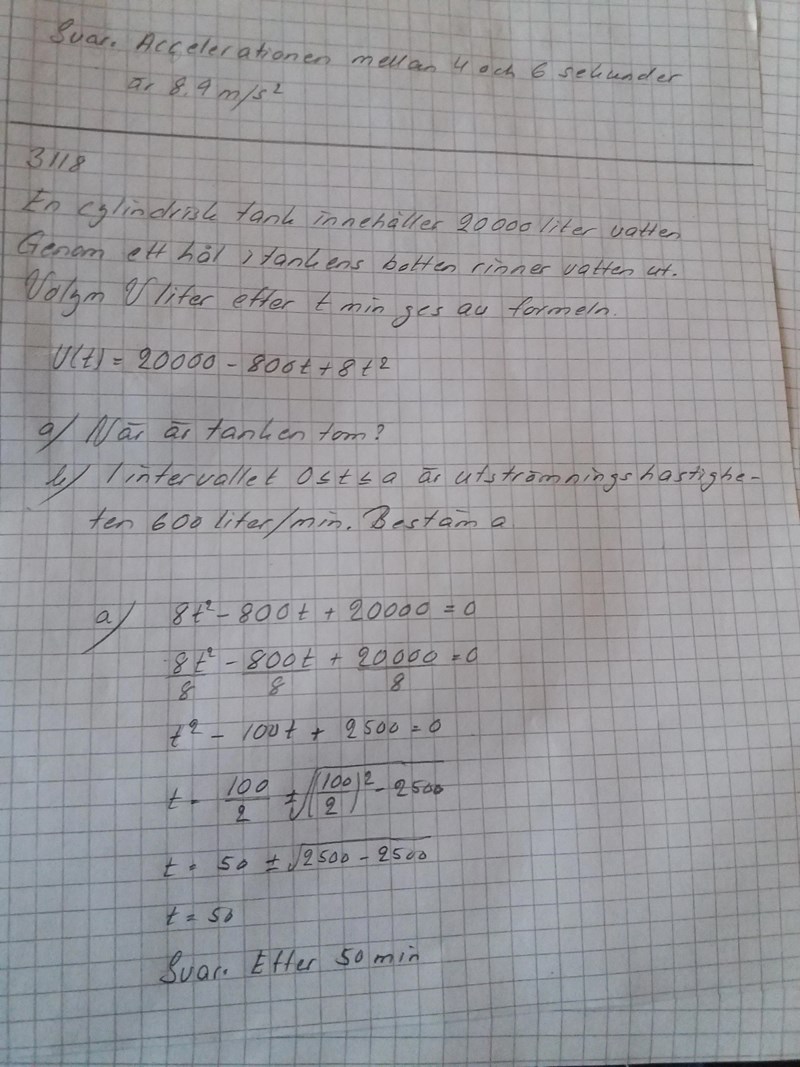 Svar. Accelerationen mellan 4 och 6 sekunder
är 8.9 m/s²
3118
En cylindrisk tank innehåller 20000 liter vatten
Genom ett hål i tankens botten rinner vatten ut.
Volym V liter efter t min ges av formeln.
V(t) = 20000 - 800t + 8t²
a) När är tanken tom?
b) I intervallet 0 ≤ t ≤ a är utströmningshastighe-
ten 600 liter/min. Bestäm a
a) 8t² - 800t + 20000 = 0
8t²/8 - 800t/8 + 20000/8 = 0
t² - 100t + 2500 = 0
t = 100/2 ± √((100/2)² - 2500)
t = 50 ± √(2500 - 2500)
t = 50
Svar. Efter 50 min